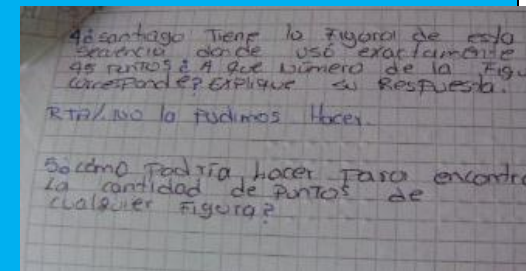 4º santiago Tiene la Figura de esta
secuencia donde usó exactamente
45 puntos ¿A que número de la Figu
corresponde? Explique su Respuesta.
RTA/ No la Pudimos Hacer.
5º cómo Podría hacer Para encontra
La cantidad de Puntos de
cualquier Figura?